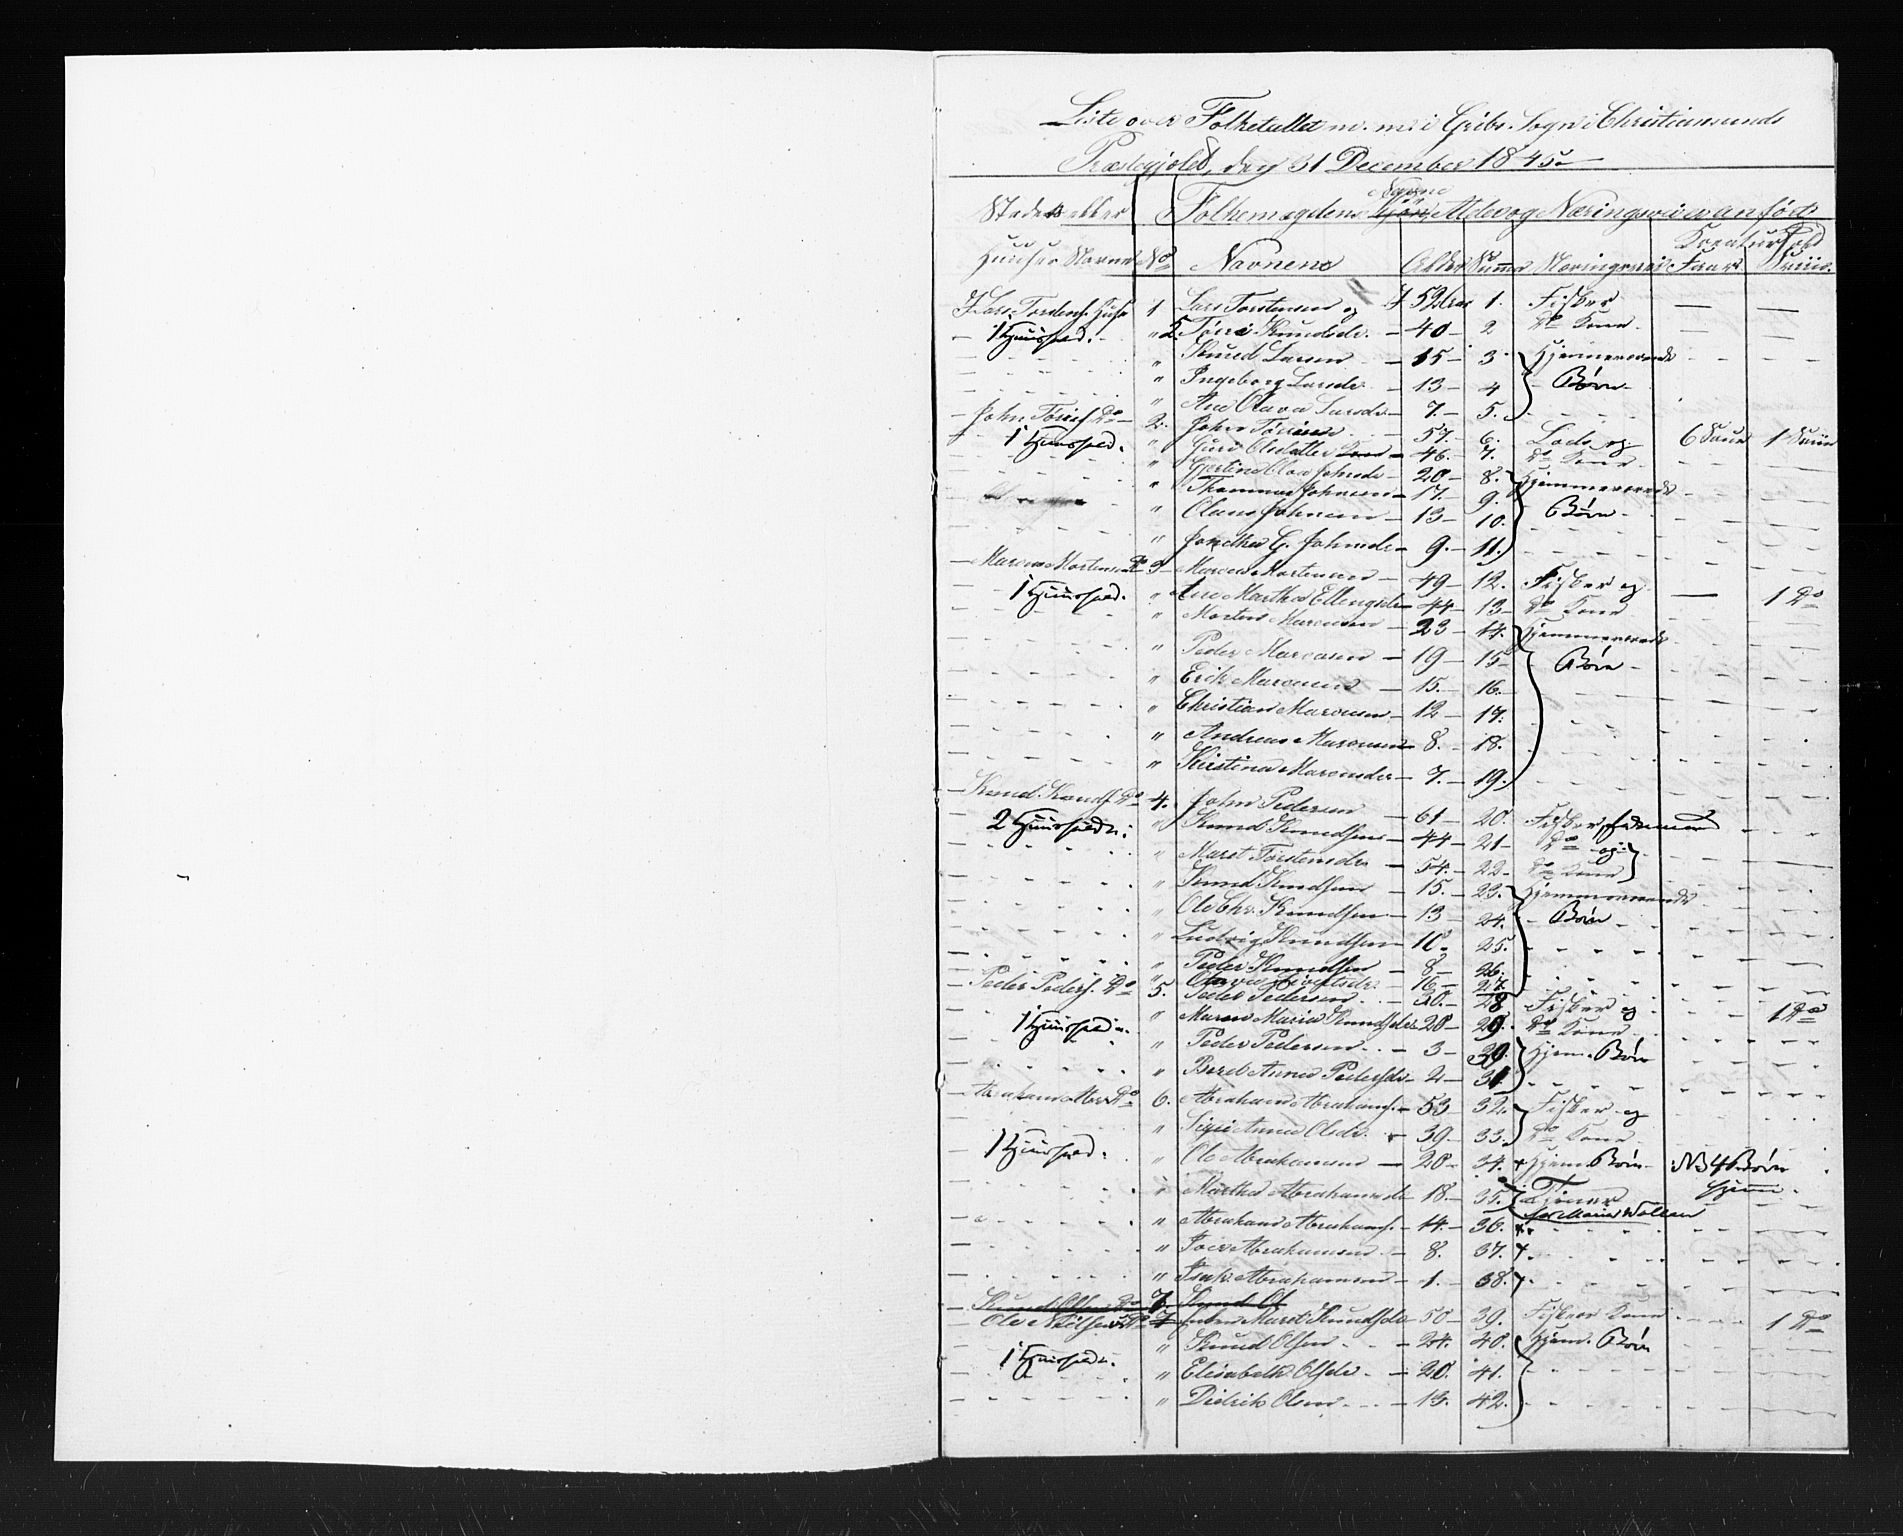 Liste over Folketallet m. m. i Gribs Sogn i Christiansunds
Præstegjeld, den 31 December 1845
Stedets eller Folkemægdens Navne Kjøn, Alder og Næringsveie anført
Huuser Navne No Navnene Alder Summa Næringsvei Kreaturhold Faar Sviin
Lars Torstens. Huus 1 Lars Torstensen og 52 Aar 1. Fisker
1 Huushold. " Knudsdr. 40 2 Do Kone
" Knud Larsen 15 3 Hjemmeværende
" Ingeborg Larsdr. 13 4 Børn
" Ane Olava Larsdr 7. 5.
John Do 2. John 57. 6. Lods og 6 1 Sviin
1 Huushold. " Guri Olsdatter Kone 46. 7. Do Kone
" Johnsdr 20 8. Hjemmeværende
" Thommas Johnsen 17. 9.
" Olaus Johnsen 13 10. Børn
" G. Johnsdr 9. 11.
Marcus Mortensen Do 3 Marcus Mortensen 49 12. Fisker og
1 Huushold. " Ane Martha Ellingsdr 44 13 Do Kone 1 Do
" Morten Marcusen 23 14. Hjemmeværende
" Peder Marcusen 19 15 Børn
" Erik Marcusen 15. 16.
" Christian Marcusen 12 17.
" Andreas Marcusen 8. 18.
" Kirstina Marcusdr 7. 19.
Knud Knuds. Do 4. John Pedersen 61 20. Fisker
2 Huushold. " Knud Knudsen 44 21 Do og
" Maret Torstensdr 54. 22. Do Kone
" Knud Knudsen 15. 23. Hjemmeværende
" Ole Chr. Knudsen 13 24. Børn
" Ludvig Knudsen 10. 25.
" Peder Knudsen 8 26.
" 16 27.
Peder Peders. Do 5. Peder Pedersen 30. 28 Fisker og 1 Do
1 Huushold. " Maren Maria Knudsdr 28 29. Do Kone
" Peder Pedersen 3 30. Hjem. Børn
" Berel Anna Pedersdr 2 31
Abraham Abr. Do 6. Abraham Abrahams. 53 32. Fisker og
" Anna Olsdr. 39 33. Do Kone
1 Huushold. " Ole Abrahamsen 20 34. Hjem. Børn NB 4 Børn
" Martha Abrahamsdr 18. 35. Tjener hjem.
" Abraham Abrahams. 14. 36.
" Abrahamsen 8. 37.
" Isak Abrahamsen 1. 38.
Knud Olsen Do 7. Knud Ol
Ole Do 7 Maret Knudsdr 50 39. Fiskers Kone 1 Do
1 Huushold. " Knud Olsen 24. 40. Hjem. Børn
" Elisabeth Olsdr. 20. 41.
" Didrik Olsen 13. 42.